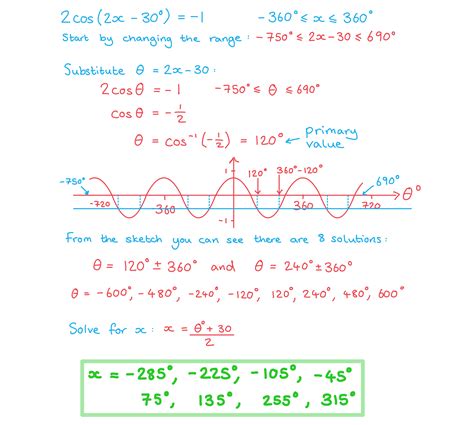 2cos(2x - 30°) = -1 -360° ≤ x ≤ 360°
Start by changing the range: -750° ≤ 2x-30 ≤ 690°
Substitute θ = 2x-30:
2cosθ = -1 -750° ≤ θ ≤ 690°
cosθ = -1/2
θ = cos⁻¹(-1/2) = 120° ← Primary value
-750° 1 120° 360°-120° 690°
-720 360 360 720 θ°
-1
From the sketch you can see there are 8 solutions:
θ = 120° ± 360° and θ = 240° ± 360°
θ = -600°, -480°, -240°, -120°, 120°, 240°, 480°, 600°
Solve for x: x = θ° + 30 / 2
x = -285°, -225°, -105°, -45°
75°, 135°, 255°, 315°